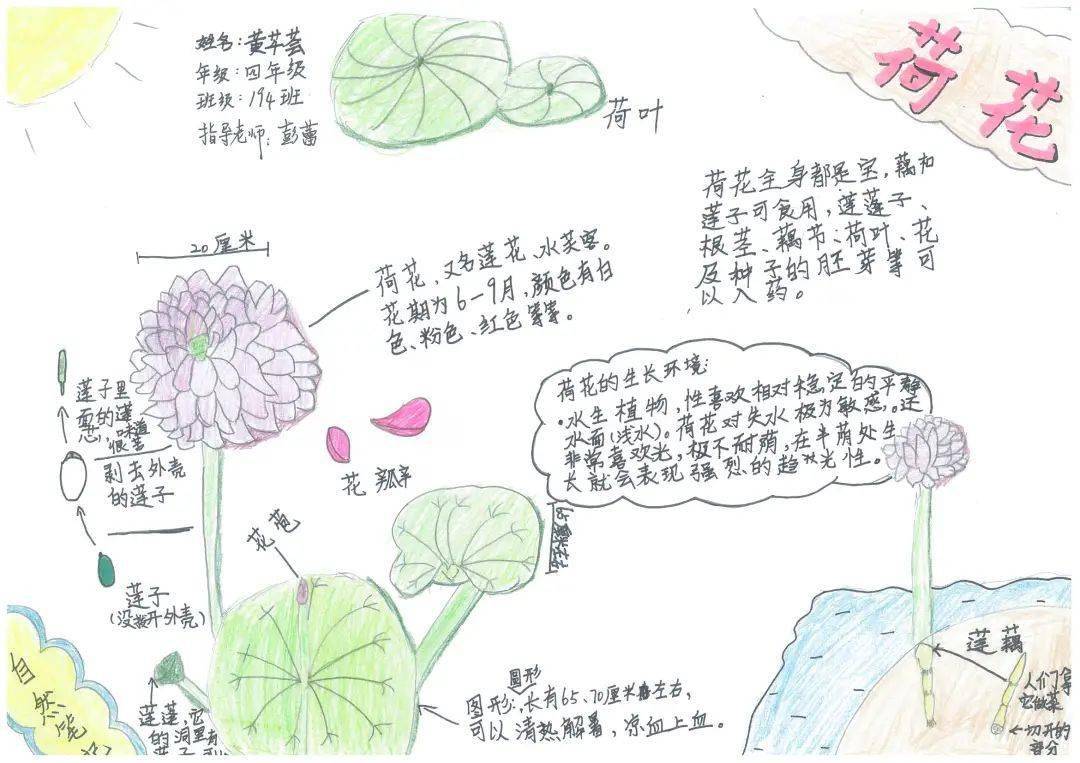 姓名：黄芊芸
年级：四年级
班级：194班
指导老师：彭蕾
荷叶
荷花
荷花全身都是宝，藕和
莲子可食用，莲蓬子、
根茎、藕节、荷叶、花
及种子的胚芽等可
以入药。
20厘米
荷花，又名莲花、水芙蓉。
花期为6-9月，颜色有白
色、粉色、红色等等。
莲子里
面的莲
味道
很苦
剥去外壳
的莲子
花瓣
花苞
荷花的生长环境：
水生植物，性喜欢相对稳定的平静
水面（浅水）。荷花对失水极为敏感。还
非常喜欢光，极不耐荫，在半荫处生
长就会表现强烈的趋光性。
莲子
（没拨开外壳）
莲藕
人们拿
它做菜
切开的
部分
圆形
图形：长有65、70厘米左右，
可以清热解暑，凉血止血。
莲蓬，它
的洞里有
自然